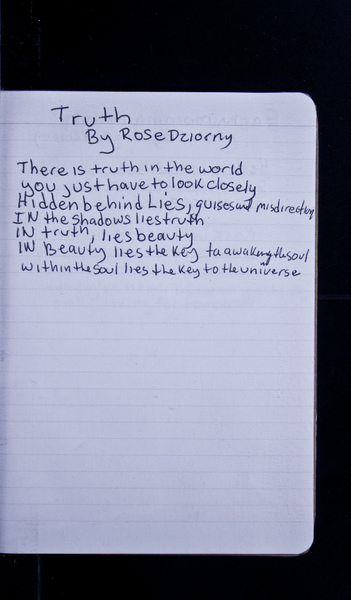 Truth
By Rose Dziorny
There is truth in the world
you just have to look closely
Hidden behind Lies, guises and misdirection
IN the shadows lies truth
IN truth, lies beauty
IN Beauty lies the key to awakening the soul
within the soul lies the key to the universe